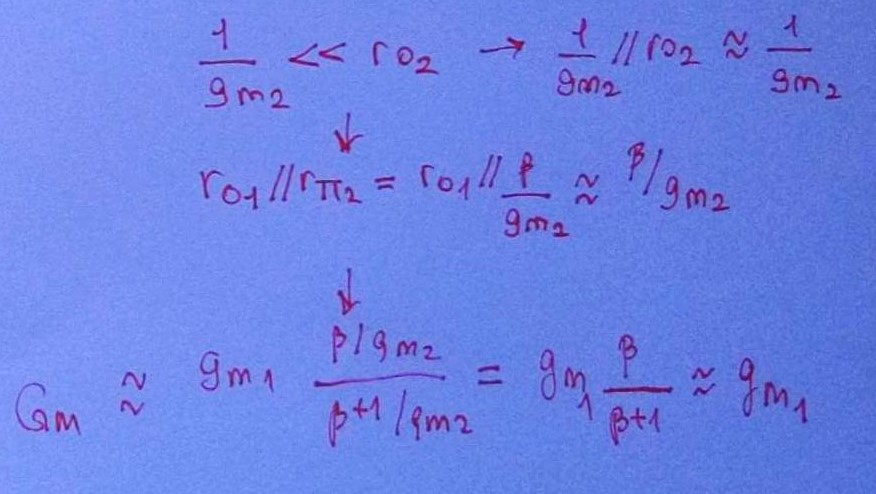 1/gm2 << ro2 → 1/gm2 // ro2 ≈ 1/gm2
↓
ro1 // rπ2 = ro1 // β/gm2 ≈ β/gm2
↓
Gm ≈ gm1 (β/gm2)/(β+1/gm2) = gm1 β/(β+1) ≈ gm1